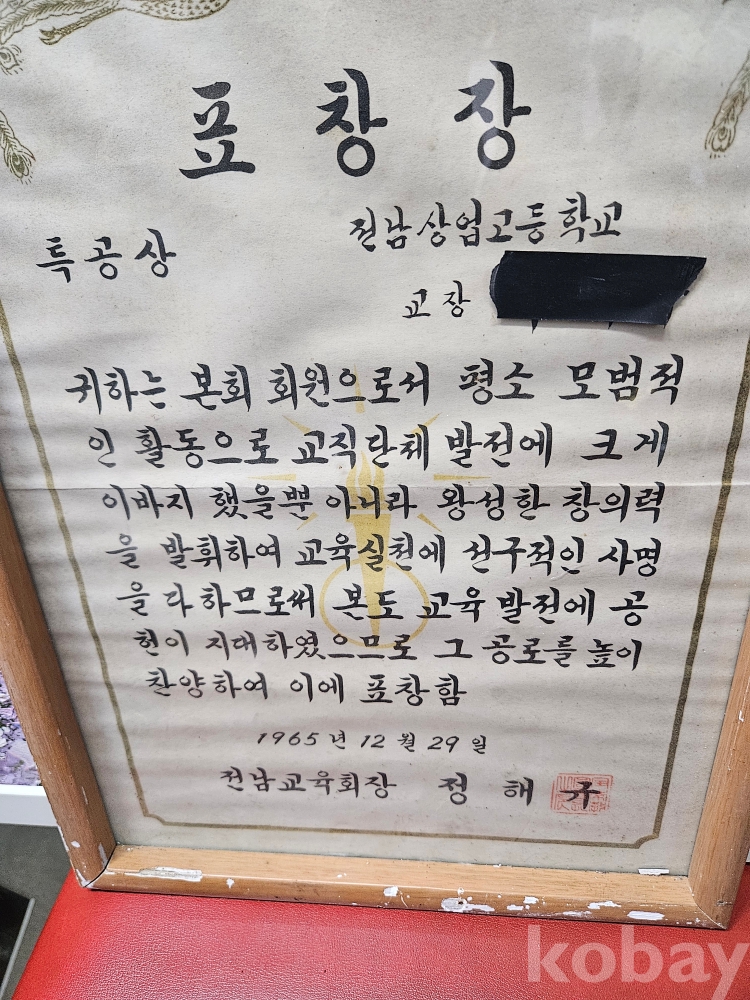 표창장
전남상업고등학교
특공상
교장
귀하는 본회 회원으로서 평소 모범적
인 활동으로 교직단체 발전에 크게
이바지 했을뿐 아니라 왕성한 창의력
을 발휘하여 교육실천에 선구적인 사명
을 다하므로써 본도 교육 발전에 공
헌이 지대하였으므로 그 공로를 높이
찬양하여 이에 표창함
1965년 12월 29일
전남교육회장 정해규
kobay